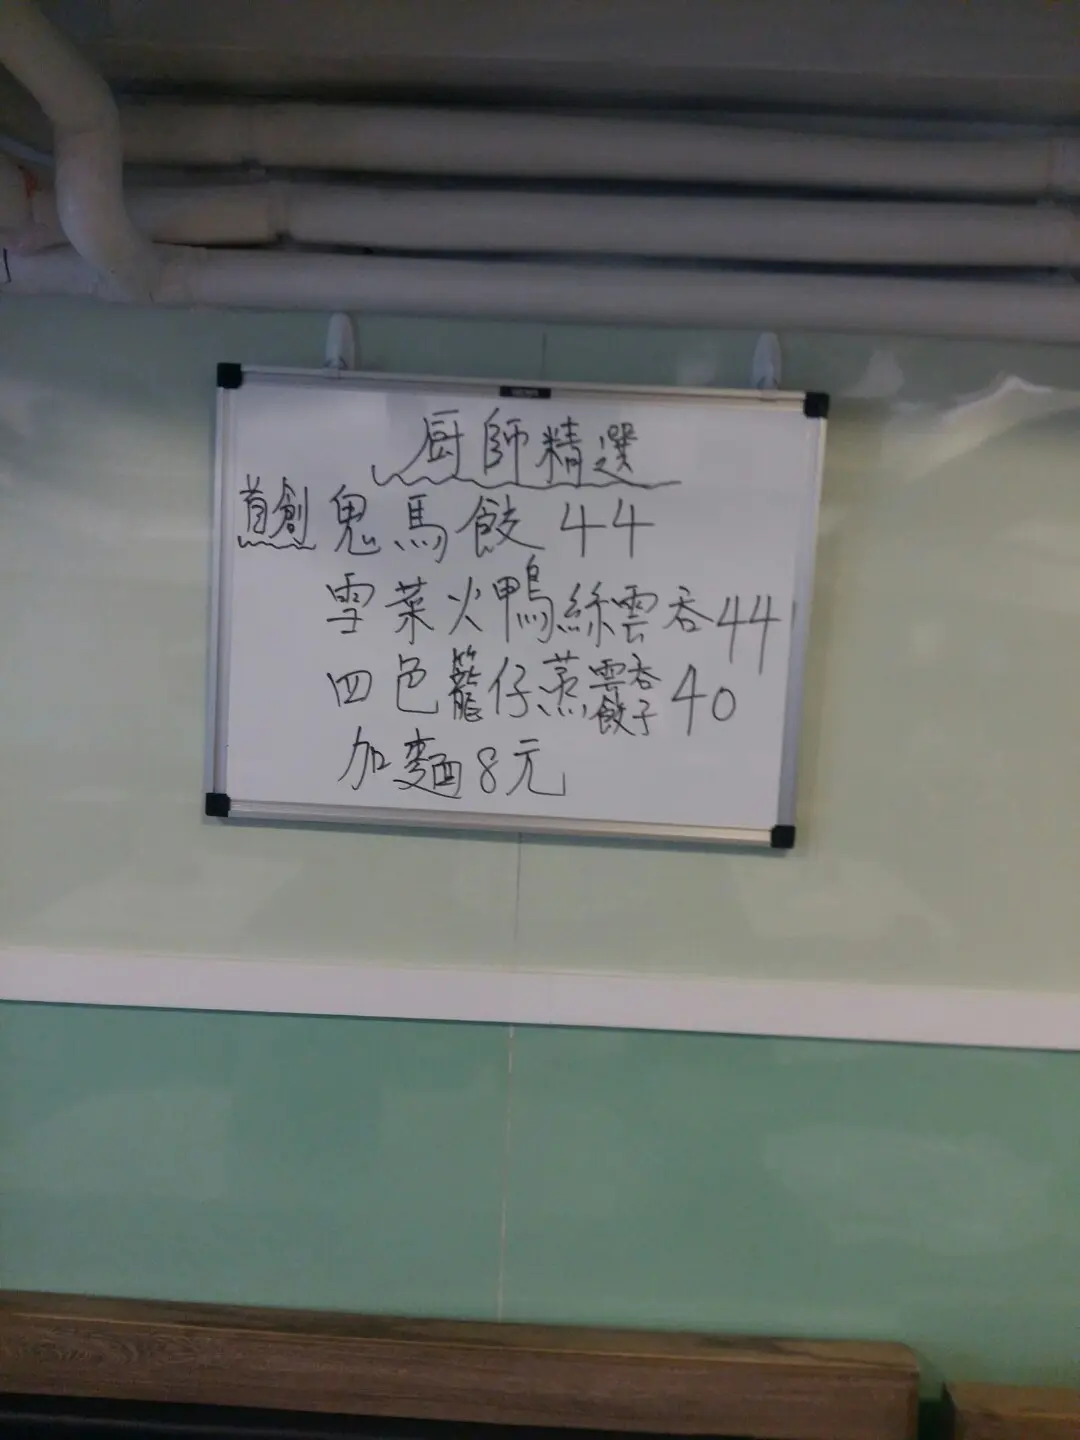 厨師精選
首創鬼馬餃44
雪菜火鴨絲雲吞44
四色籠仔蒸雲吞餃子40
加麵8元